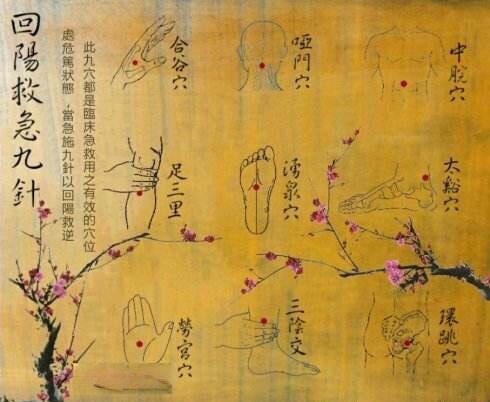 回陽救急九針
此九穴都是臨床急救用之有效的穴位
處危篤狀態,當急施九針以回陽救逆
合谷穴
啞門穴
中脘穴
足三里
湧泉穴
太谿穴
勞宮穴
三陰交
環跳穴